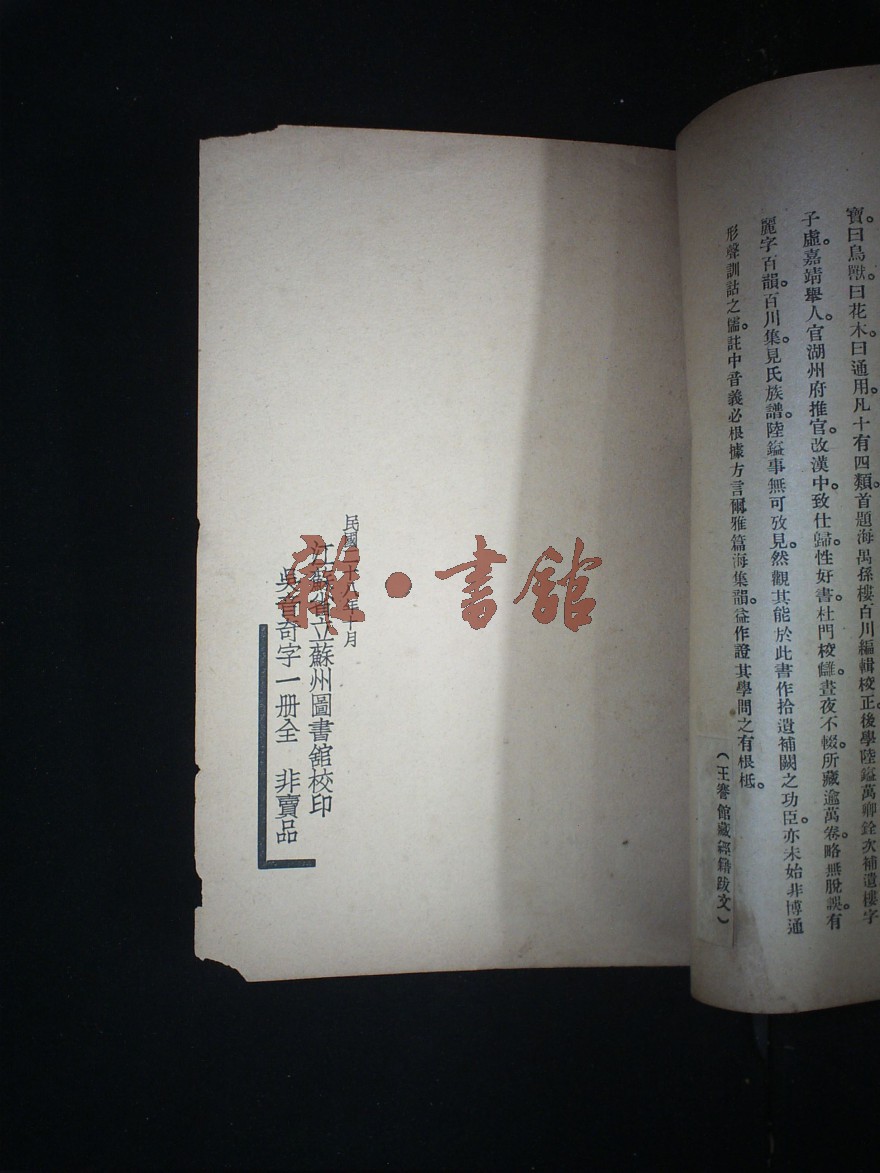 寶。曰鳥獸。曰花木。曰通用。凡十有四類。首題海禺孫樓百川編輯校正。後學陸鎰萬卿銓次補遺。樓字
子虛。嘉靖舉人。官湖州府推官。改漢中。致仕歸。性好書。杜門校讎。晝夜不輟。所藏逾萬卷。略無脫誤。有
麗字百韻。百川集。見氏族譜。陸鎰事無可攷見。然觀其能於此書作拾遺補闕之功臣。亦未始非博通
形聲訓詁之儒。註中音義必根據方言爾雅篇海集韻。益作證其學問之有根柢。
(王謇館藏經籍跋文)
民國二十八年十月
江蘇省立蘇州圖書館校印
吳音奇字一册全 非賣品
雜·書館